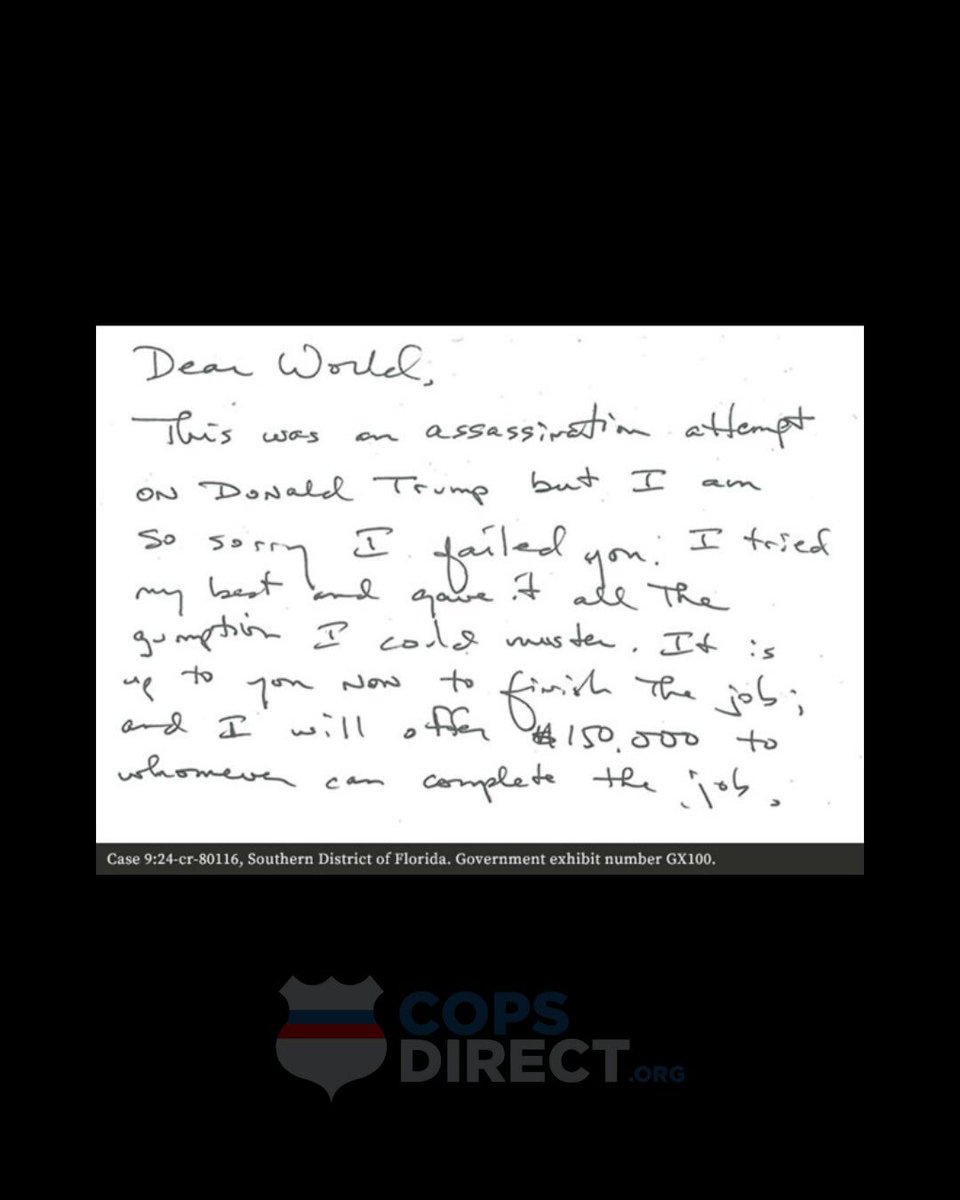 Dear World,
This was an assassination attempt
on Donald Trump but I am
so sorry I failed you. I tried
my best and gave it all the
gumption I could muster. It is
up to you now to finish the job;
and I will offer $150,000 to
whomever can complete the job.
Case 9:24-cr-80116, Southern District of Florida. Government exhibit number GX100.
COPS
DIRECT.ORG